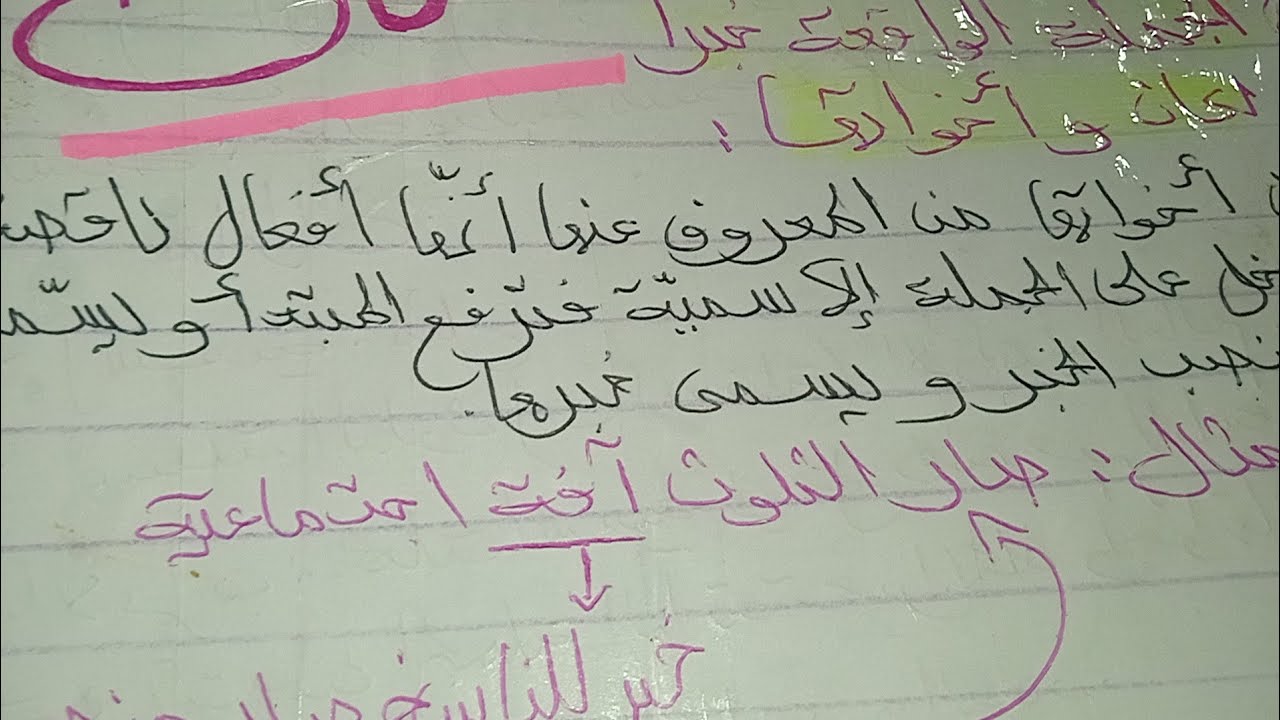 الجملة الواقعة خبرا
لكان و أخواتها :
أخواتها من المعروف عنها أنّها أفعال ناقصة
على الجملة الإسميّة فترفع المبتدأ و يسمّ
نصب الخبر و يسمى خبرها.
مثال : صار التلوث آفة اجتماعية
خبر للناسخ صار